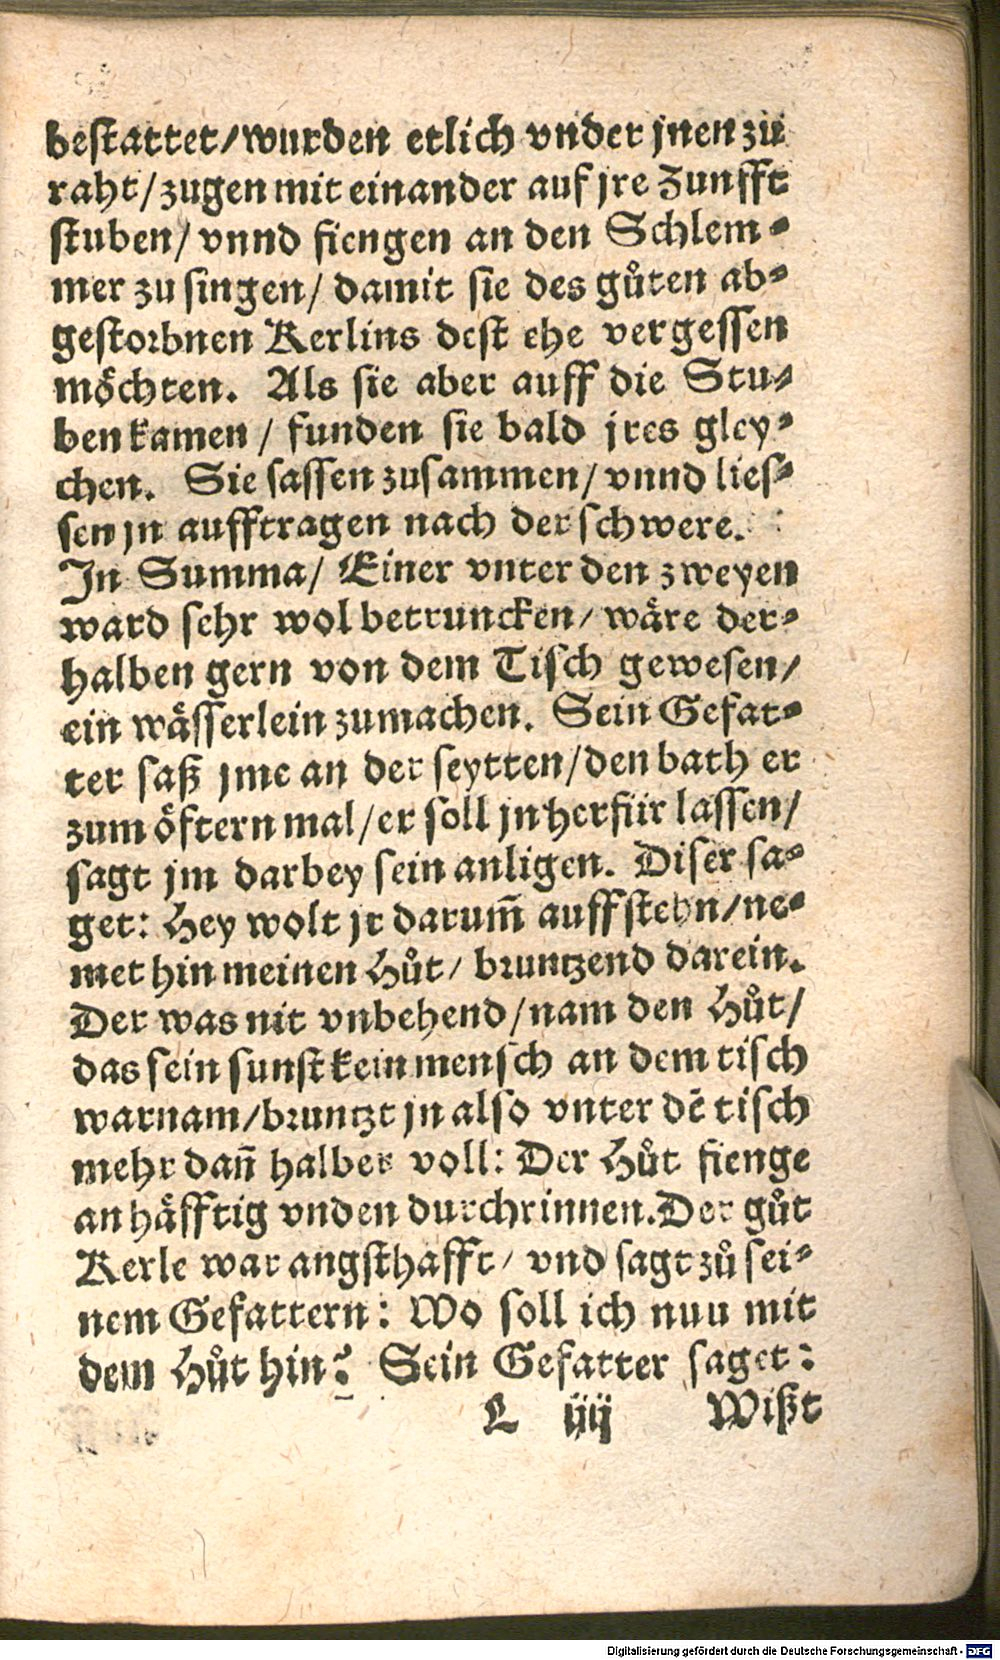 bestattet/wurden etlich vnder jnen zů
raht/zugen mit einander auf jre Zunfft
stuben/ vnnd fiengen an den Schlem⸗
mer zu singen/ damit sie des gůten ab⸗
gestorbnen Kerlins dest ehe vergessen
möchten. Als sie aber auff die Stu⸗
ben kamen / funden sie bald jres gley⸗
chen. Sie sassen zusammen/ vnnd lies⸗
sen jn aufftragen nach der schwere.
In Summa/ Einer vnter den zweyen
ward sehr wol betruncken/ wäre der⸗
halben gern von dem Tisch gewesen/
ein wässerlein zumachen. Sein Gefat⸗
ter saß jme an der seytten/den bath er
zum öftern mal/er soll jn herfür lassen/
sagt jm darbey sein anligen. Diser sa⸗
get: Hey wolt jr darum̃ auffstehn/ne⸗
met hin meinen Hůt/ bruntzend darein.
Der was nit vnbehend/nam den Hůt/
das sein sunst kein mensch an dem tisch
warnam/bruntzt jn also vnter dẽ tisch
mehr dañ halber voll: Der Hůt fienge
an häfftig vnden durchrinnen.Der gůt
Kerle war angsthafft/ vnd sagt zů sei⸗
nem Gefattern: Wo soll ich nuu mit
dem Hůt hin? Sein Gefatter saget:
L iiij Wißt
Digitalisierung gefördert durch die Deutsche Forschungsgemeinschaft - DFG